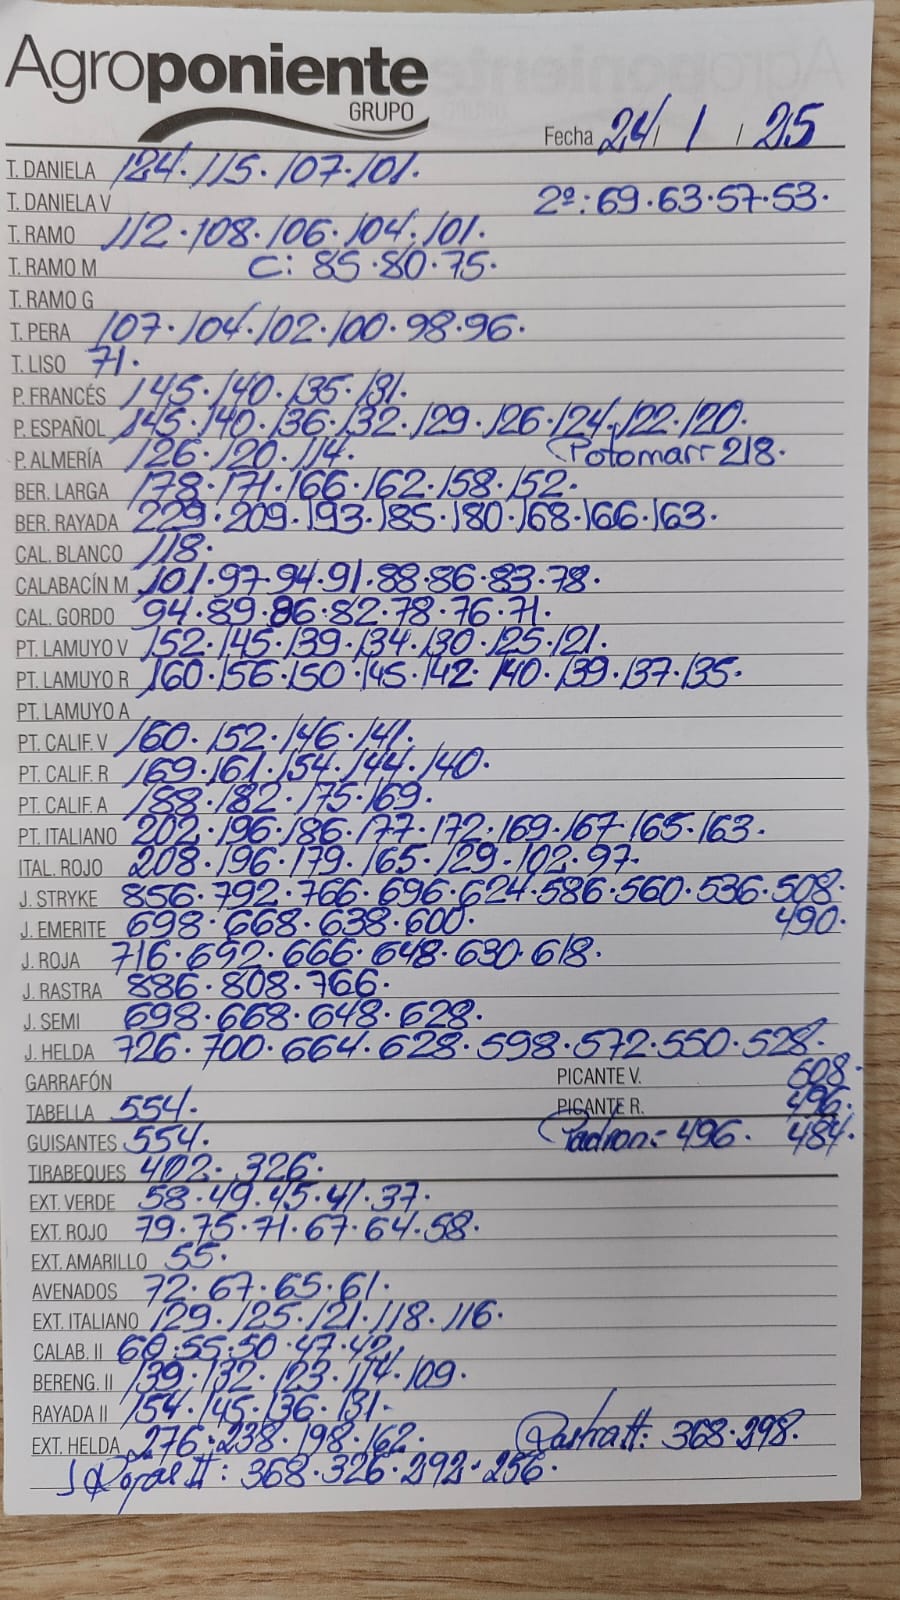 Agroponiente
GRUPO
Fecha 24 / 1 / 25
T. DANIELA 124. 115. 107. 101.
T. DANIELA V 2º: 69. 63. 57. 53.
T. RAMO 112. 108. 106. 104. 101.
T. RAMO M C: 85. 80. 75.
T. RAMO G
T. PERA 107. 104. 102. 100. 98. 96.
T. LISO 71.
P. FRANCÉS 145. 140. 135. 131.
P. ESPAÑOL 145. 140. 136. 132. 129. 126. 124. 122. 120.
P. ALMERÍA 126. 120. 114. Potomarr 218.
BER. LARGA 178. 171. 166. 162. 158. 152.
BER. RAYADA 229. 209. 193. 185. 180. 168. 166. 163.
CAL. BLANCO 118.
CALABACÍN M 101. 97. 94. 91. 88. 86. 83. 78.
CAL. GORDO 94. 89. 86. 82. 78. 76. 71.
PT. LAMUYO V 152. 145. 139. 134. 130. 125. 121.
PT. LAMUYO R 160. 156. 150. 145. 142. 140. 139. 137. 135.
PT. LAMUYO A
PT. CALIF. V 160. 152. 146. 141.
PT. CALIF. R 169. 161. 154. 144. 140.
PT. CALIF. A 188. 182. 175. 169.
PT. ITALIANO 202. 196. 186. 177. 172. 169. 167. 165. 163.
ITAL. ROJO 208. 196. 179. 165. 129. 102. 97.
J. STRYKE 856. 792. 766. 696. 624. 586. 560. 536. 508.
J. EMERITE 698. 668. 638. 600. 490.
J. ROJA 716. 692. 666. 648. 630. 618.
J. RASTRA 886. 808. 766.
J. SEMI 698. 668. 648. 628.
J. HELDA 726. 700. 664. 628. 598. 572. 550. 528.
GARRAFÓN PICANTE V. 508.
TABELLA 554. PICANTE R. 496.
GUISANTES 554. Padron: 496. 484.
TIRABEQUES 402. 326.
EXT. VERDE 58. 49. 45. 41. 37.
EXT. ROJO 79. 75. 71. 67. 64. 58.
EXT. AMARILLO 55.
AVENADOS 72. 67. 65. 61.
EXT. ITALIANO 129. 125. 121. 118. 116.
CALAB. II 60. 55. 50. 47. 42.
BERENG. II 139. 132. 123. 114. 109.
RAYADA II 154. 145. 136. 131.
EXT. HELDA 276. 238. 198. 162. Rastra II: 368. 298.
J Roja II: 368. 326. 292. 256.